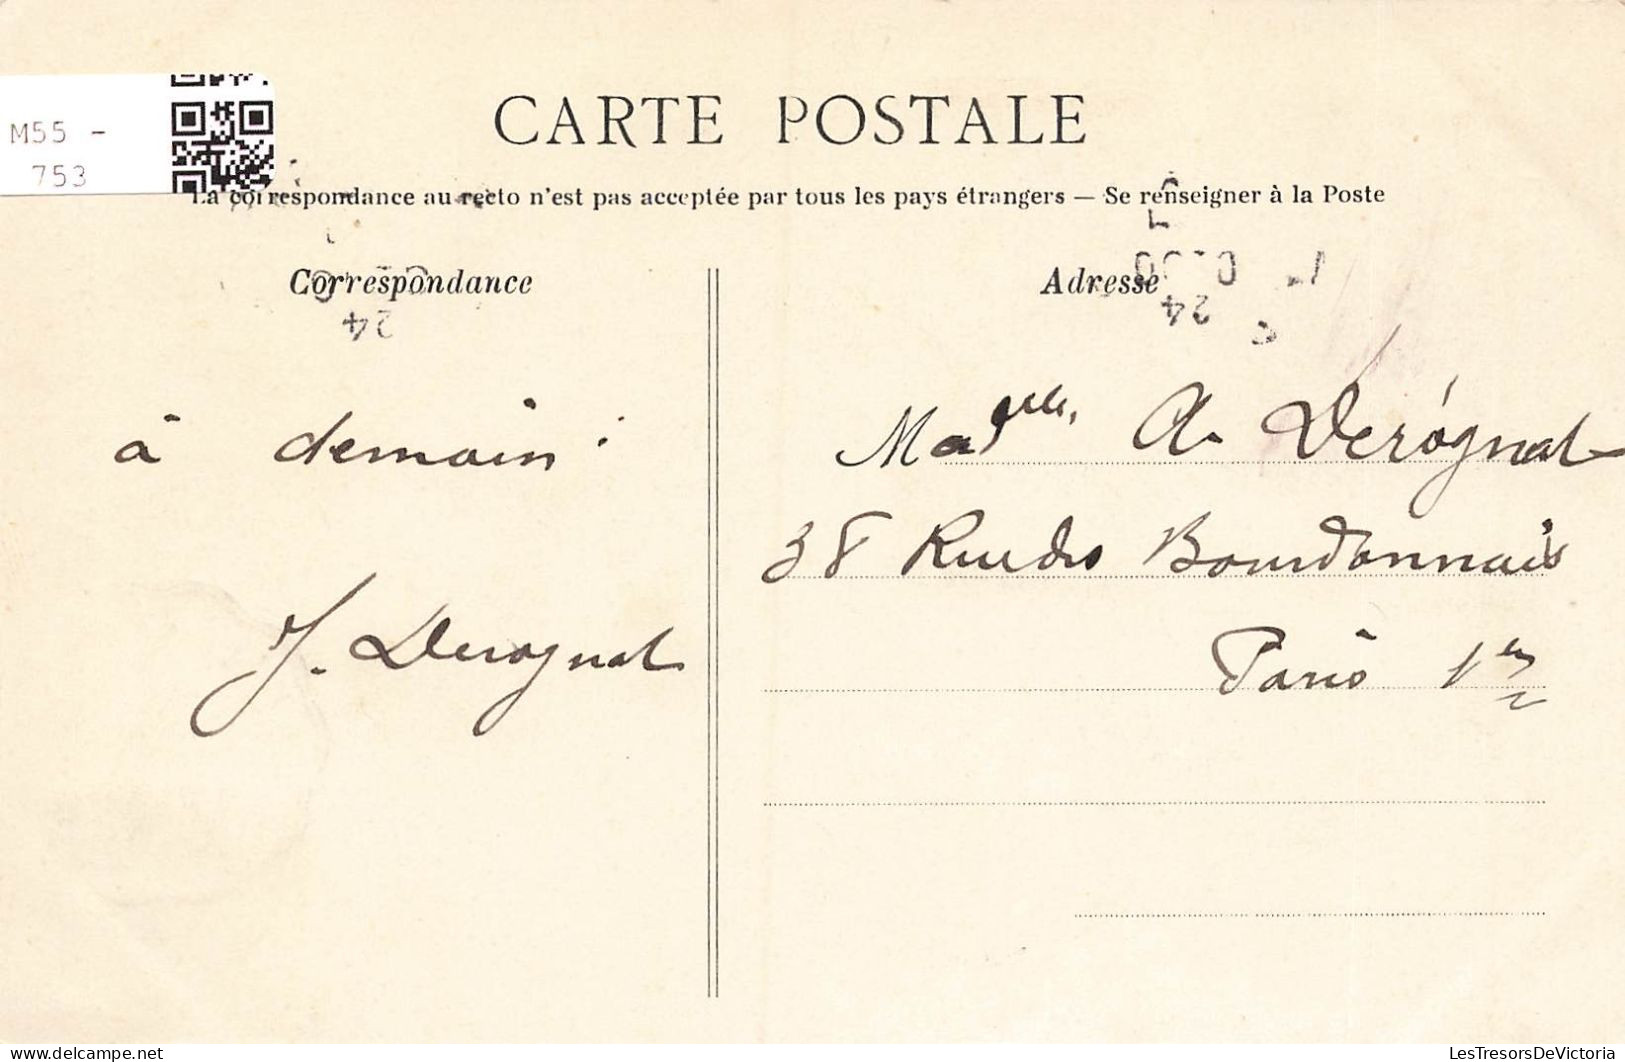 CARTE POSTALE
M55 -
753
La correspondance au recto n'est pas acceptée par tous les pays étrangers — Se renseigner à la Poste
Correspondance
Adresse
24
24
à demain.
J. Derognat
Madelle A. Derógnat
38 Rue des Bourdonnais
Paris 1er
www.delcampe.net
LesTresorsDeVictoria